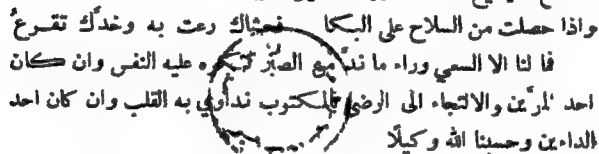 واذا حصلت من السلاح على البكا فحشاك رعت به وخدّك تقرعُ
فما لنا الا السعي وراء ما ندّ مع الصبر تكره عليه النفس وان كان
احد المرّين والالتجاء الى الرضى بالمكتوب نداوي به القلب وان كان احد
الداءين وحسبنا الله وكيلًا